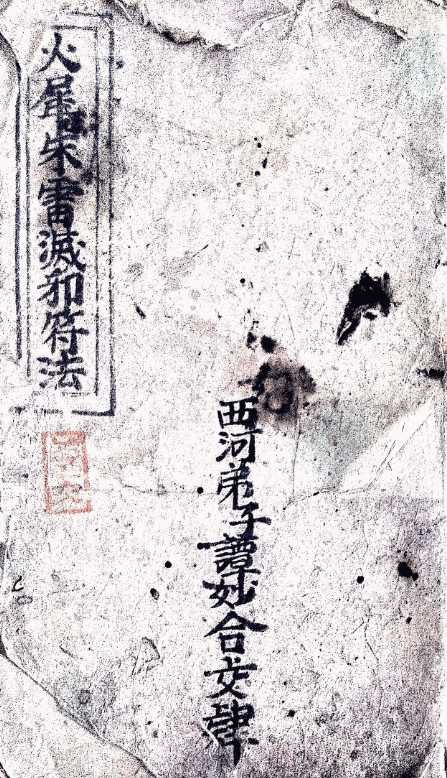 西河弟子譚妙合文肆
火犀朱雷滅邪符法